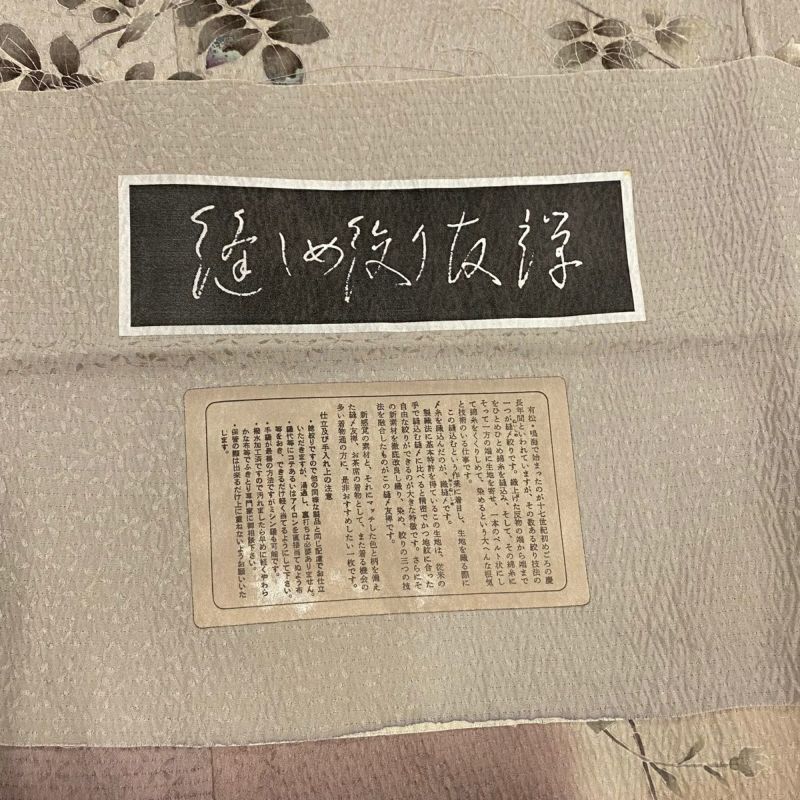 縫しめ絞り友禅
有松・鳴海で始まったのが十七世紀初めごろの慶
長年間といわれていますが、その数ある絞り技法の
一つが縫〆絞りです。織上げた反物の端から端まで
をひとめひとめ綿糸を縫込み、そして、その綿糸に
そって一方の端に生地を寄せ、一本のベルト状にし
て綿糸をくくりしめて、染めるという大へんな根気
と技術のいる仕事です。
この縫込むという作業に着目し、生地を織る際に
〆糸を織込んだのが、織縫〆です。
製織法に基本特許を得ているこの生地は、従来の
手で縫込む縫〆に比べると精密でかつ地紋に合った
自由な絞りができるのが大きな特徴です。さらにそ
の新素材を徹底改良し織り、染め、絞りの三つの技
法を融合したものがこの縫〆友禅です。
新感覚の素材と、それにマッチした色と柄を備え
た縫〆友禅、お茶席の着物として、また着る機会の
多い着物通の方に、是非おすすめしたい一枚です。
仕立及び手入れ上の注意
・総絞りですので他の同様な製品と同じ配慮でお仕立
いただきますが、湯通し、裏打ちは必要ありません。
・縫代等にコテあるいはアイロンを直接当てぬよう布
等をおき、できるだけ軽く当てるようにして下さい。
・手縫が最善の方法ですがミシン縫も可能です。
・撥水加工済ですので汚れましたら早めに軽くやわら
かな布等でふきとり専門家に御相談下さい。
・保管の際は出来るだけ上に重ねないようお願いいた
します。